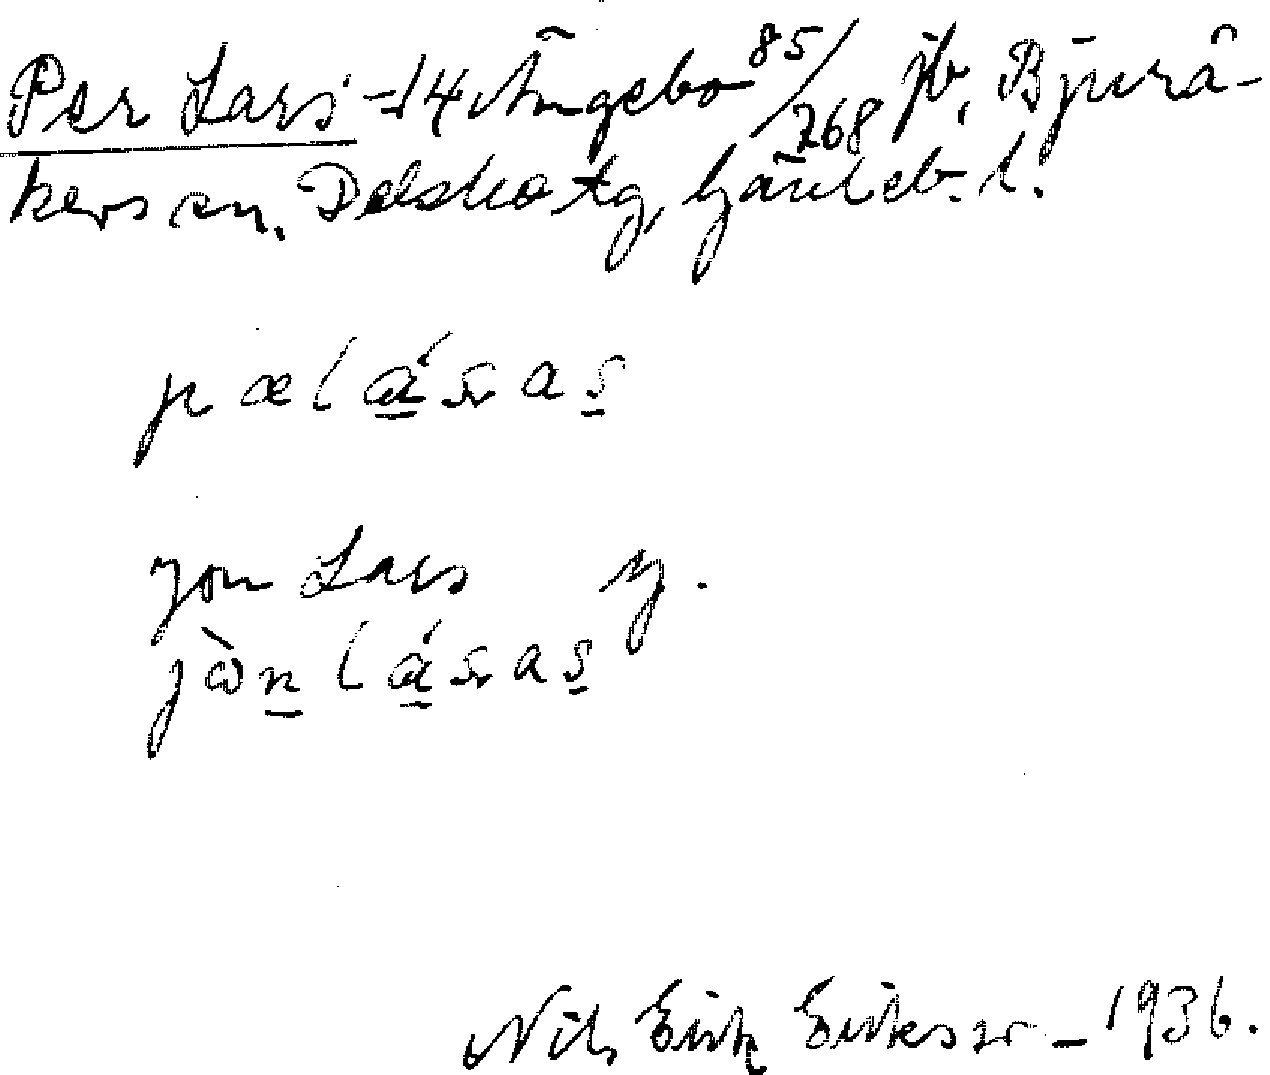 Per Lars -14 Ängebo 85/768 jb, Bjurå-
kers sn. Delsbo tg, Gävleb. l.
pælásas
Jon Lars
jònlásas
Nils Erik Eriksson - 1936.